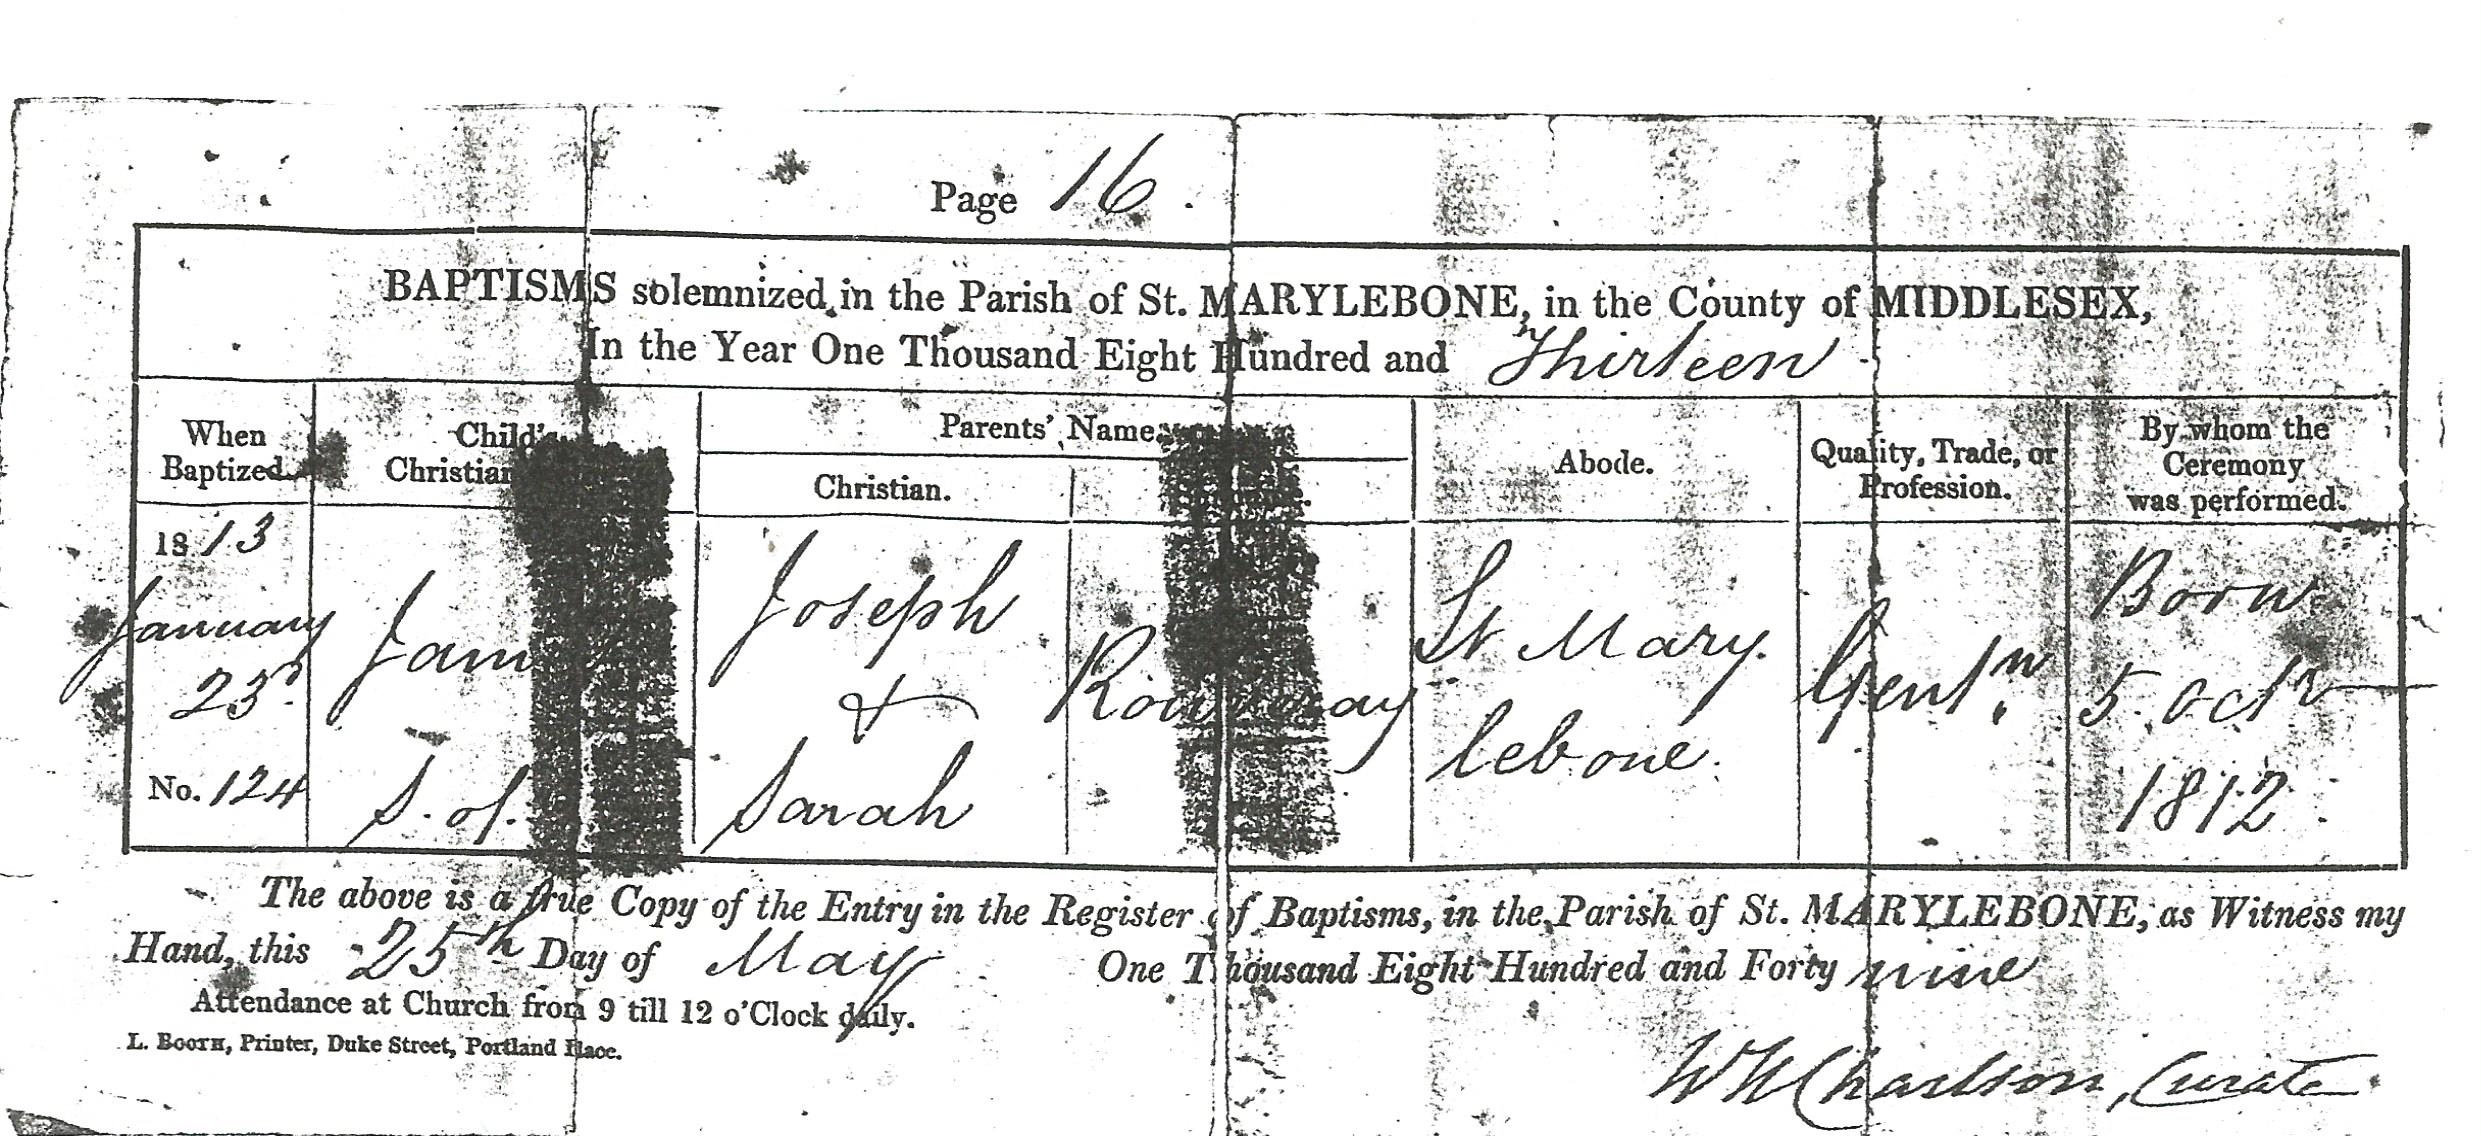 Page 16.
BAPTISMS solemnized in the Parish of St. MARYLEBONE, in the County of MIDDLESEX,
In the Year One Thousand Eight Hundred and Thirteen
When Baptized.
Child's Christian
Parents' Name
Christian.
Abode.
Quality, Trade, or Profession.
By whom the Ceremony was performed.
1813
January
23d
No. 124
Jam
S. of
Joseph
&
Sarah
St Mary
lebone.
Gentn.
Born
5 Octr
1812
The above is a true Copy of the Entry in the Register of Baptisms, in the Parish of St. MARYLEBONE, as Witness my
Hand, this 25th Day of May One Thousand Eight Hundred and Forty nine
Attendance at Church from 9 till 12 o'Clock daily.
L. BOOTH, Printer, Duke Street, Portland Place.
Curate